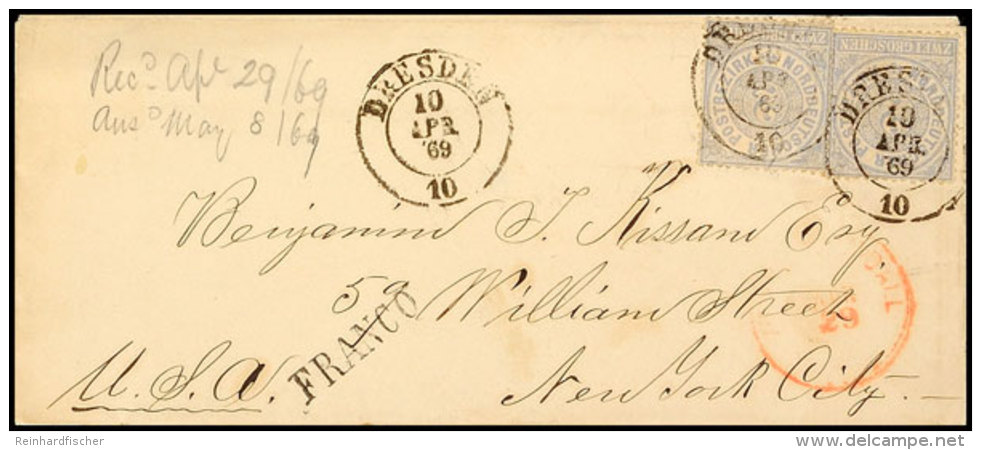 Rec.d Apl 29/69
Ansd May 8/69
DRESDEN
10
APR.
69
10
ZWEI GROSCHEN
NORDDEUTSCHER POSTBEZIRK
DRESDEN
10
APR
69
10
ZWEI GROSCHEN
DRESDEN
10
APR.
69
10
Benjamin J. Kissam Esq.
59
William Street
29
FRANCO
U.S.A.
New York City.
Reinhardfischer
www.delcampe.net